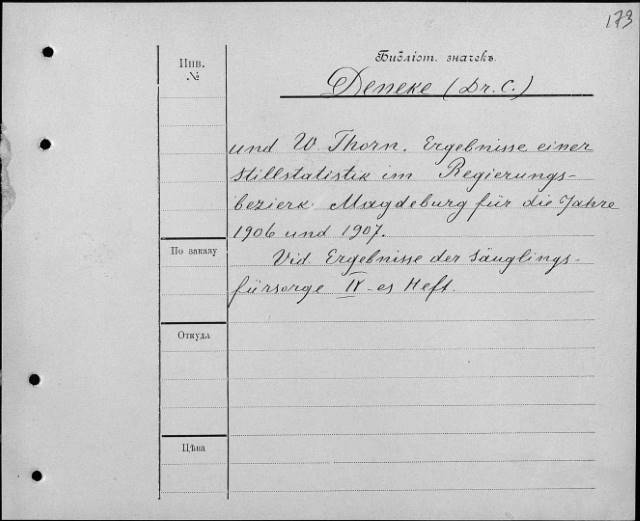 173
Библіот. значекъ.
Инв.
№
Deneke (Dr. C.)
und W. Thorn. Ergebnisse einer
Stillstatistik im Regierungs-
bezierk Magdeburg für die Jahre
1906 und 1907.
По заказу
Vid. Ergebnisse der Säuglings-
fürsorge IV-es Heft.
Откуда
Цѣна